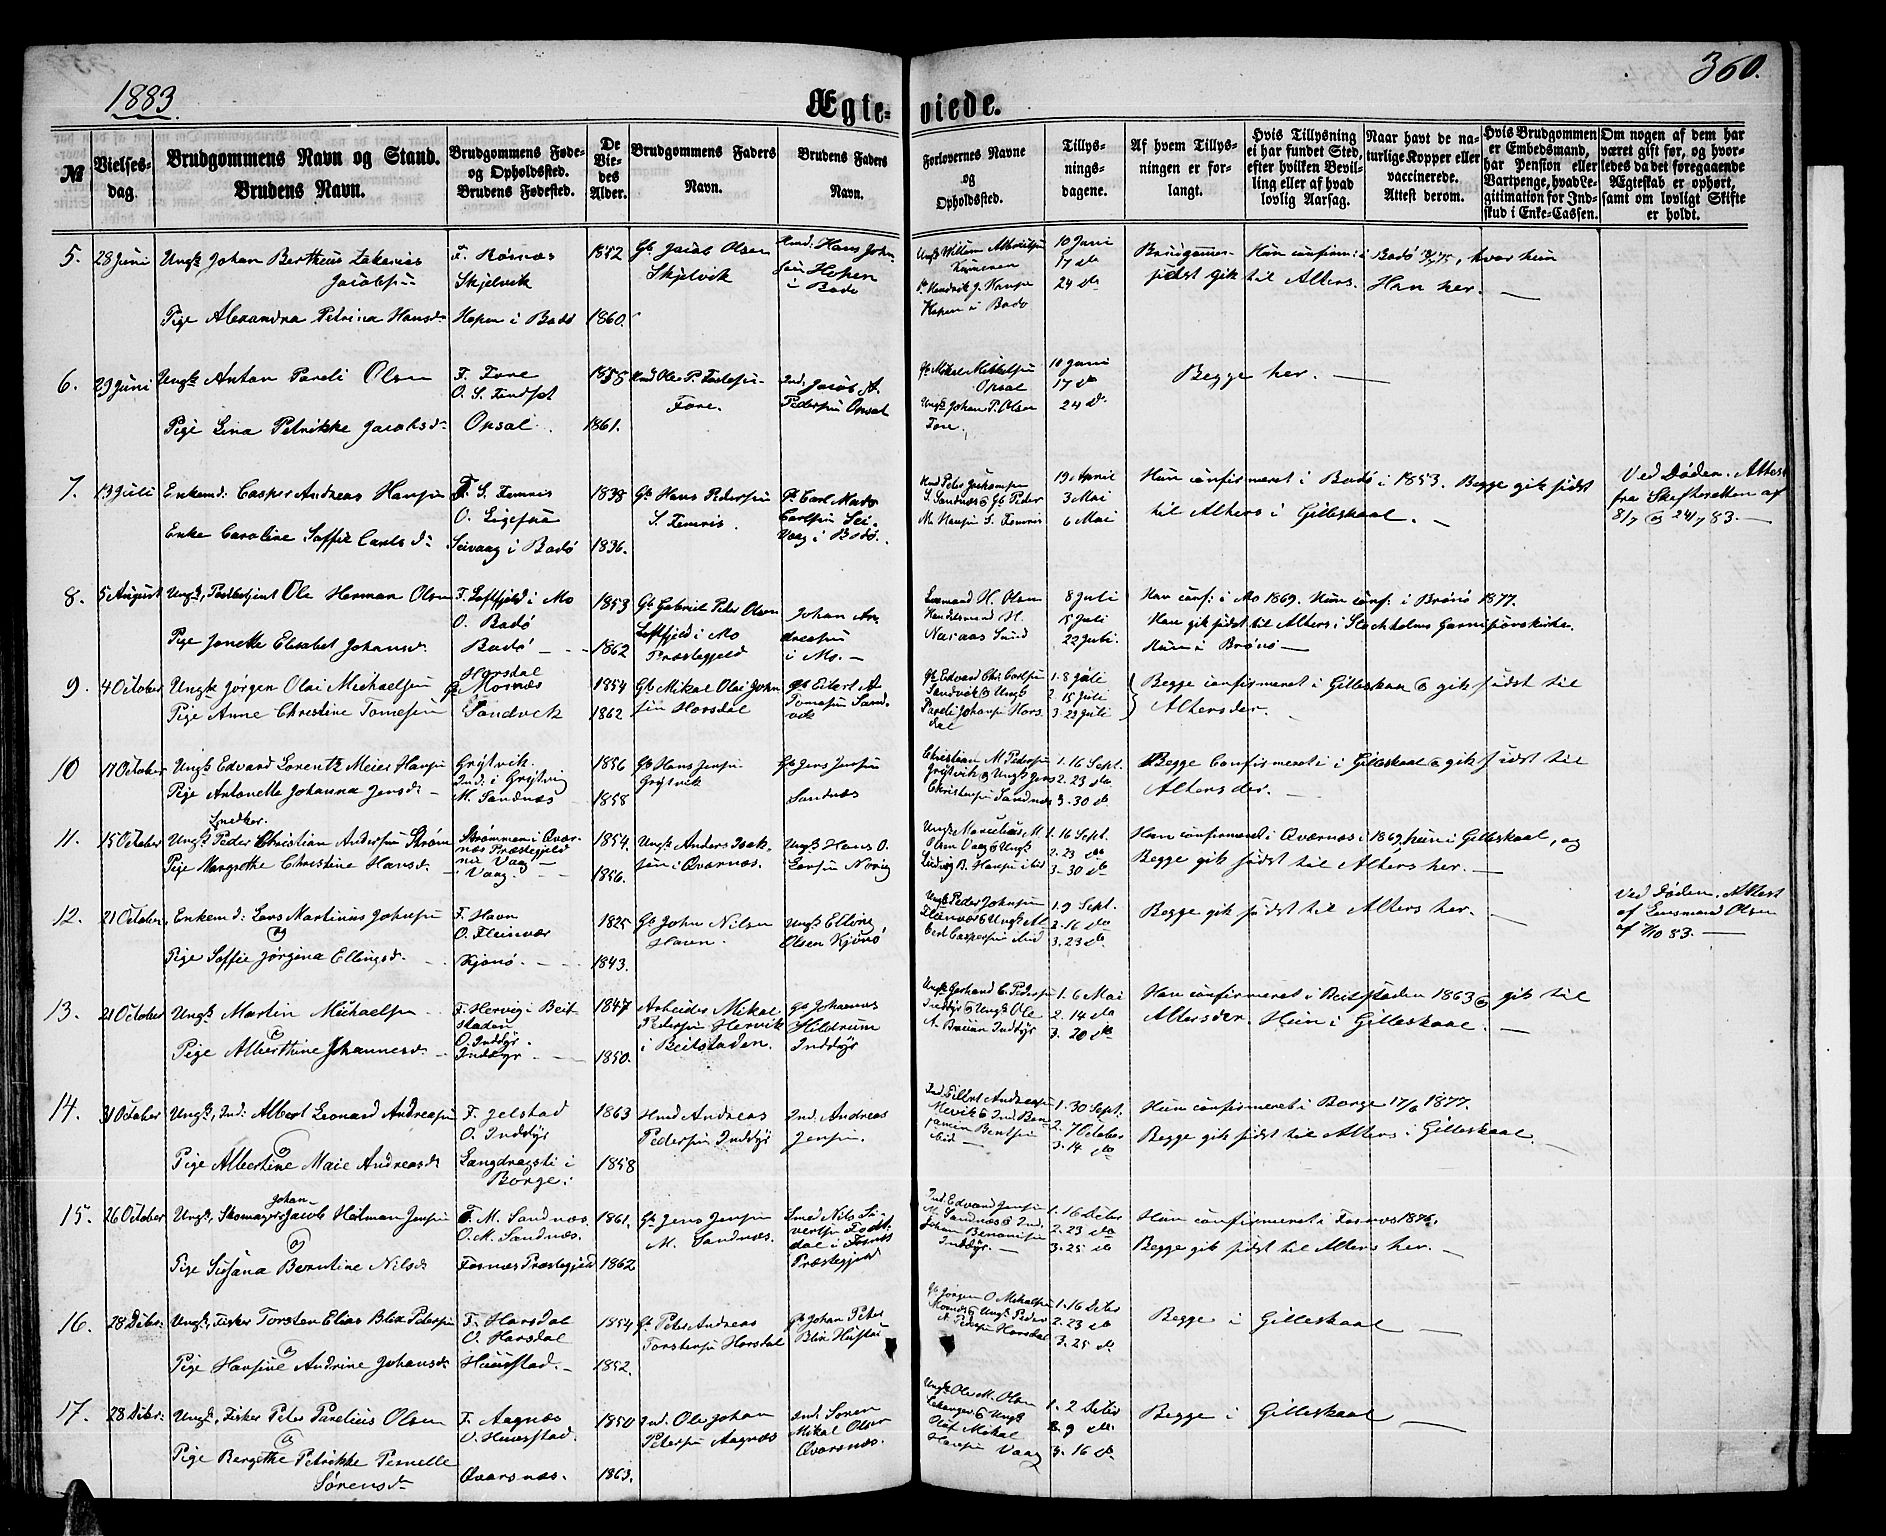 1883
360.
Ægte-
viede.
№
Vielses-
dag.
Brudgommens Navn og Stand.
Brudens Navn.
Brudgommens Føde-
og Opholdssted.
Brudens Fødested.
De
Vie-
des
Alder.
Brudgommens Faders
Navn.
Brudens Faders
Navn.
Forlovernes Navne
og
Opholdssted.
Tillys-
nings-
dagene.
Af hvem Tillys-
ningen er for-
langt.
Hvis Tillysning
ei har fundet Sted,
efter hvilken Bevil-
ling eller af hvad
lovlig Aarsag.
Naar havt de na-
turlige Kopper eller
vaccinerede.
Attest derom.
Hvis Brudgommen
er Embedsmand,
har Pension eller
Vartpenge, hvad Le-
gitimation for Ind-
skud i Enke-Cassen.
Om nogen af dem har
været gift før, og hvor-
ledes da det foregaaende
Ægteskab er ophørt,
samt om lovligt Skifte
er holdt.
5.
28 Juni
Ungk Johan Bertheus Zakarias
Jacobsen
Pige Alexandra Petrina Hansd.
F. Rørnæs
Skjelvik
Hopen i Bodø
1852
1860.
Gb Jacob Olsen
Skjelvik
Hans John
sen Hopen
i Bodø
10 Juni
17 do
24 do
Brudgommen
sidst gik til Alters.
Hun confirm: i Bodø, hvor hun
Han her.
6.
29 Juni
Ungk Anton Pareli Olsen
Pige Lina Petrikke Jacobsd.
F. Fore
O. S. Findset
Opsal.
1858
1861.
Fore.
Ind. Jacob A.
Pedersen Opsal
Gb Mikal Mikkelsen
Opsal
Ungk Johan P. Olsen
Fore.
10 Juni
17 do
24 do
Begge her.
7.
13 Juli
Enkemd: Casper Andreas Hansen
Enke Caroline Soffie Carlsd.
F. S. Femris
Seivaag i Bodø
1838
1836.
Gb Hans Pedersen
S. Femris.
Gb Carl Mads
Carlsen Sei-
vaag i Bodø.
S. Sandnæs & Gb Peder
M. Hansen S. Femris
19 April
3 Mai
6 Mai
Hun confirmeret i Bodø i 1853. Begge gik sidst
til Alters i Gilleskaal.
Ved Døden. Attest
fra Skifteretten af
8/7 & 24/7 83.
8.
5 August
Ungk, Postbetjent Ole Herman Olsen
Pige Janette Elisabet Johansd.
F. Loftfjeld i Mo
O. Bodø
Bodø
1853
1862
Gb Gabriel Peter Olsen
Loftfjeld i Mo
Præstegjeld
Johan An
dreasen
i Mo.
Lensmand H. Olsen
Handelsmand H.
8 Juli
15 Juli
22 Juli.
Han conf: i Mo 1869. Hun conf: i Brønø 1877.
Han gik sidst til Alters i Stockholms Garnisonskirke.
Hun i Brønø
9.
4 October
Ungk Jørgen Olai Michaelsen
Pige Anne Christine Tomesen
Horsdal
Mornæs
Sandvik
1854
1862
Gb Mikal Olai John
sen Horsdal
Gb Eilert A
Tomesen Sand
vik
Sandvik & Ungk
Pareli Johansen Hors
dal
1. 8 Juli
2. 15 Juli
3. 22 Juli
Begge confirmeret i Gilleskaal & gik sidst til
Alters der.
10
17 October
Ungk Edvard Lorentz Meier Hansen
Pige Antonette Johanna Jensd.
Grytvik.
Ind. i Grytvig
M. Sandnæs
1856
1858
Gb Hans Jensen
Grytvik
Gb Jens Jensen
Sandnæs
Christian M Pedersen
Grytvik & Ungk Jens
Christensen Sandnæs
1. 16 Sept.
2. 23 do
3. 30 do
Begge Confirmeret i Gilleskaal & gik sidst til
Alters der.
11.
15 October
Snedker.
Ungk Peder Christian Andersen Strøm
Pige Margrethe Christine Hansd.
Strømmen i Qvær-
næs Præstegjeld
i Vaag.
1854.
1856.
Ungk Anders Isak-
sen i Qværnæs.
Ungk Hans O.
Larsen Norvig
Ungk Marcelius M.
Olsen Vaag & Ungk
Ludvig B. Hansen ibid
1. 16 Sept.
2. 23 do
3. 30 do
Han confirmeret i Qværnæs i 1869, hun i Gilleskaal, og
Begge gik sidst til Alters her.
12.
21 October
Enkemd: Lars Martinus Johnsen
og
Pige Soffie Jørgina Ellingsd.
F. Havn
O. Fleinvær
Kjønø.
1825
1843.
Gb John Nilsen
Havn.
Ungk Elling
Olsen Kjønø
Ungk Peder Johnsen
Fleinvær & Ungk Al
bert Caspersen ibid
1. 9 Sept.
2. 16 do
3. 23 do
Begge gik sidst til Alters her.
Ved Døden. Attest
af Lensmand Olsen
af 7/10 83.
13.
21 October
Ungk Martin Michaelsen
&
Pige Alberthine Johannesd.
F. Hervig i Beit-
staden
O. Inddyr.
Inddyr
1847
1850.
Arbeider Mikal
Pedersen Hervik
i Beitstaden.
Gb Johannes
Hildrum
Inddyr
Ungk Gerhard C. Pedersen
Inddyr & Ungk Ole
A. Inddyr
1. 6 Mai
2. 14 do
3. 20 do
Han confirmeret i Beitstaden 1863 & gik til
Alters der. Hun i Gilleskaal.
14.
31 October
Ungk, Ind: Albert Leonard Andreasen
&
Pige Albertine Maie Andreasd.
F. Jelstad
O. Inddyr
Langdragsti i
Borge.
1863
1858
Hmd Andreas
Pedersen Inddyr
Ind. Andreas
Jensen.
Ind Eilert Andreassen
Mevik & Ind Ben-
jamin Bentsen
ibid
1. 30 Sept.
2. 7 October
3. 14 do
Hun confirmeret i Borge 17/6 1877.
Begge gik sidst til Alters i Gilleskaal.
15.
26 October
Johan
Ungk, Skomager Jacob Hilman Jensen
og
Pige Susana Berntine Nilsd.
F. M. Sandnæs.
O. M. Sandnæs.
Fosnæs Præstegjeld
1861.
1862
Gb Jens Jensen
M. Sandnæs.
Smed Nils Si
vertsen Fodt-
dal i Fosnæs
Præstegjeld
Ind. Edvard Jensen
M. Sandnæs & Ind.
Johan Benonisen
Inddyr.
1. 16 Dcbr
2. 23 do
3. 25 do
Hun confirmeret i Fosnæs 1876.
Begge gik sidst til Alters her.
16.
28 Dcbr.
Ungk, Fisker Torsten Elias Blix Petersen
&
Pige Hansine Andrine Johansd.
F. Horsdal
O. Horsdal
Hustad.
1854
1852.
Gb Peter Andreas
Torstensen Horsdal
Gb Johan Peter
Blix Hustad
Gb Jørgen O Mikalsen
Mornæs & Ungk Peder
A. Pedersen Horsdal
1. 16 Dcbr
2. 23 do
3. 25 do
Begge i Gilleskaal
17.
28 Dcbr.
Ungk, Fisker Peter Parelius Olsen
&
Pige Bergithe Petrikke Pernelle
Sørensd.
F. Aagnæs
O. Hustad.
Qvarsnæs.
1850
1863.
Ind. Ole Johan
Petersen Aagnæs
Ind. Søren
Mikal Olsen
Qvarsnæs.
Ungk Ole M. Olsen
& Ungk
Olaf Mikal
Hansen Vaag
1. 2 Dcbr
2. 9 do
3. 16 do
Begge i Gilleskaal